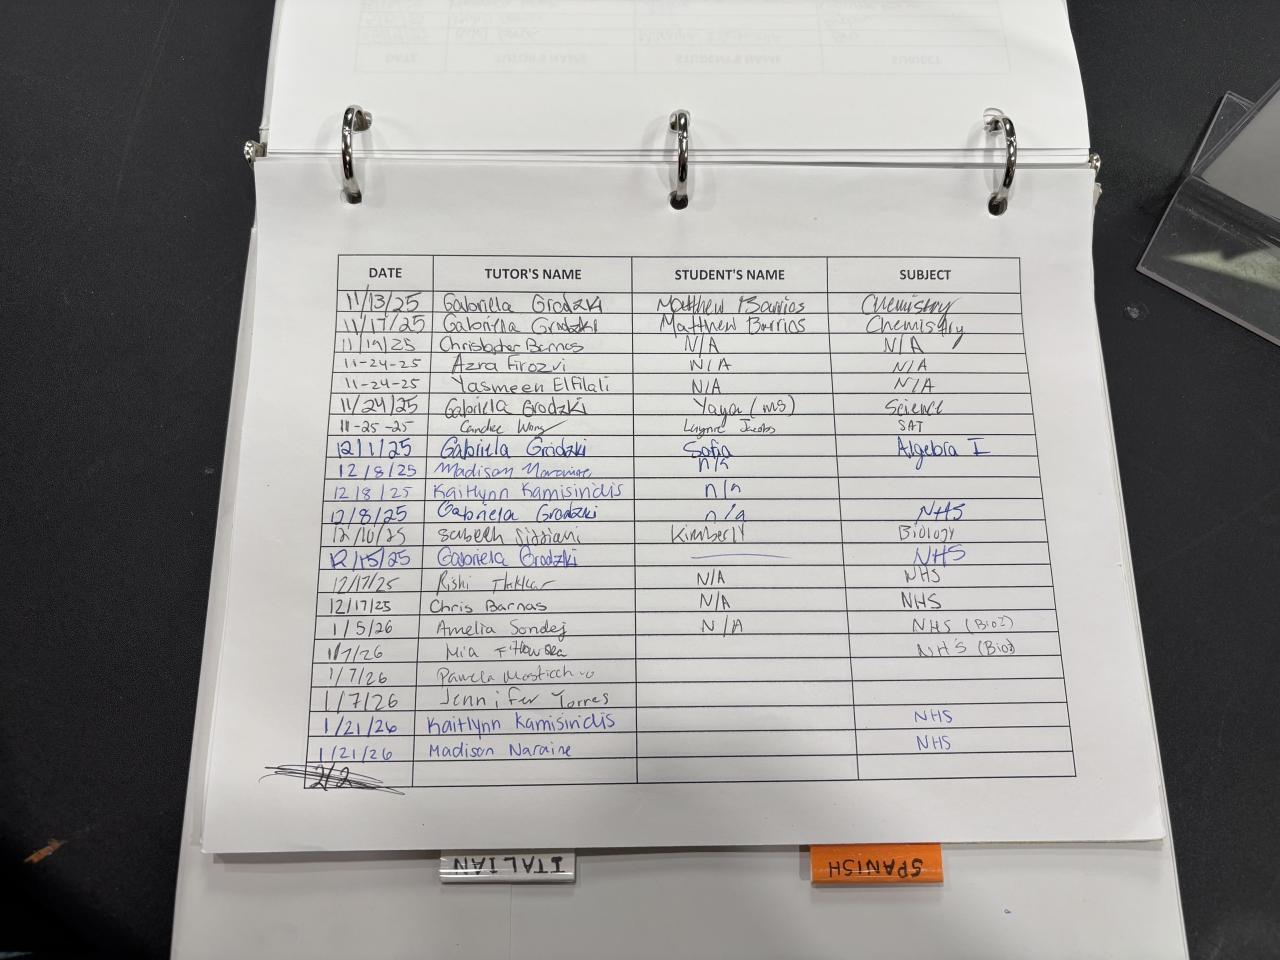 DATE TUTOR'S NAME STUDENT'S NAME SUBJECT
DATE TUTOR'S NAME STUDENT'S NAME SUBJECT
11/13/25 Gabriella Grodzki Matthew Barrios Chemistry
11/17/25 Gabriella Grodzki Matthew Barrios Chemistry
11/19/25 Christopher Barnas N/A N/A
11-24-25 Azra Firozvi N/A N/A
11-24-25 Yasmeen Elfilali N/A N/A
11/24/25 Gabriella Grodzki Yaya (MS) Science
11-25-25 Candice Wong Jacobs SAT
12/1/25 Gabriela Grodzki Sofia Algebra I
12/8/25 Madison Naraine n/a
12/8/25 Kaitlynn Kamisinidis n/a
12/8/25 Gabriela Grodzki n/a NHS
12/10/25 Kimberly Biology
12/15/25 Gabriela Grodzki NHS
12/17/25 Rishi Thakkar N/A NHS
12/17/25 Chris Barnas N/A NHS
1/5/26 Amelia Sondej N/A NHS (Bio2)
1/7/26 Mia NHS (Bio)
1/7/26 Pamela
1/7/26 Jennifer Torres
1/21/26 Kaitlynn Kamisinidis NHS
1/21/26 Madison Naraine NHS
2/2
ITALIAN SPANISH